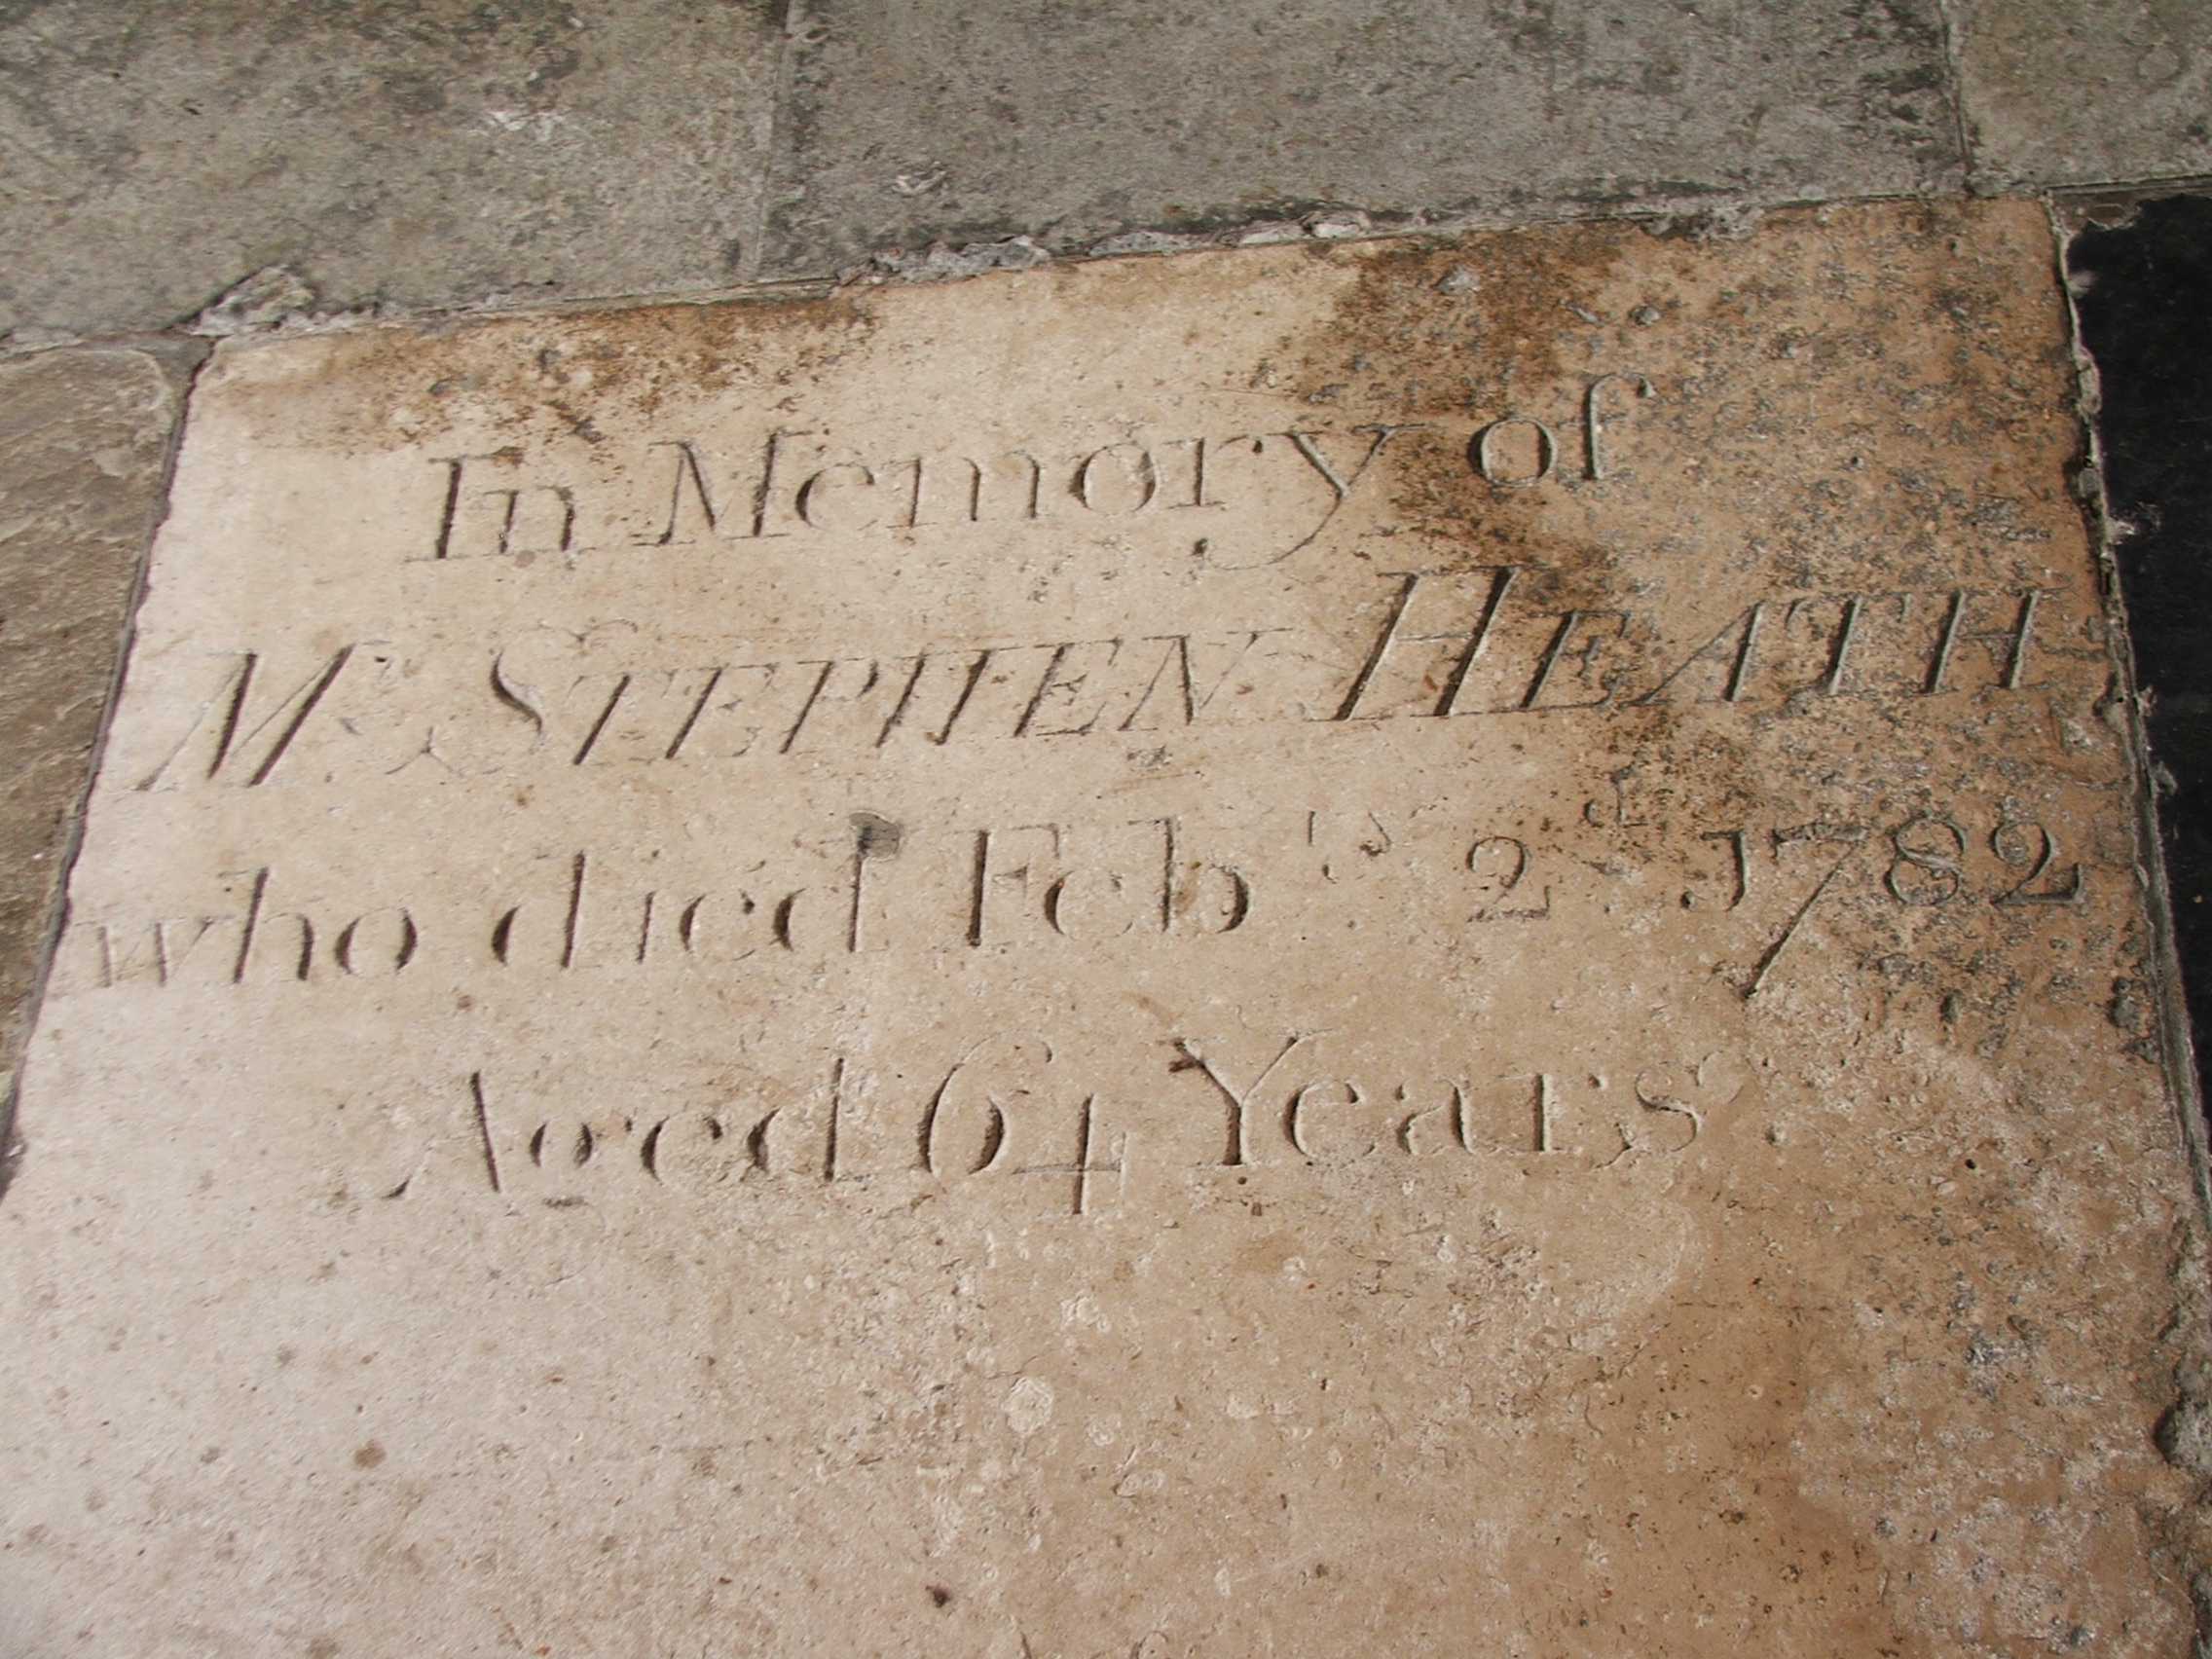 In Memory of
Mr STEPHEN HEATH
who died Febry 2d 1782
Aged 64 Years